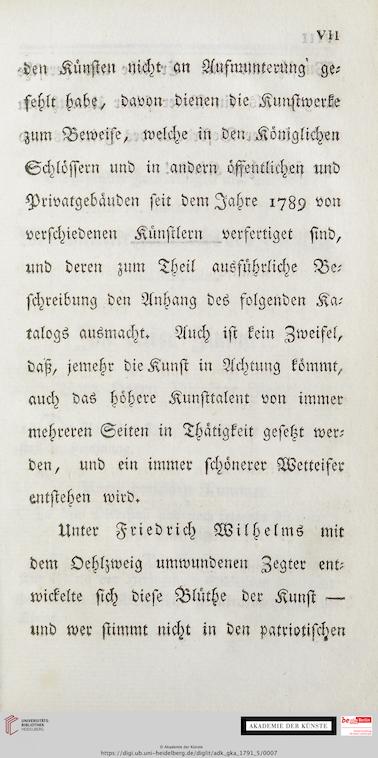 VII
den Künſten nicht an Aufmunterung ge⸗
fehlt habe, davon dienen die Kunſtwerke
zum Beweiſe, welche in den Königlichen
Schlöſſern und in andern öffentlichen und
Privatgebäuden ſeit dem Jahre 1789 von
verſchiedenen Künſtlern verfertiget ſind,
und deren zum Theil ausführliche Be⸗
ſchreibung den Anhang des folgenden Ka⸗
talogs ausmacht. Auch iſt kein Zweifel,
daß, jemehr die Kunſt in Achtung kömmt,
auch das höhere Kunſttalent von immer
mehreren Seiten in Thätigkeit geſetzt wer⸗
den, und ein immer ſchönerer Wetteifer
entſtehen wird.
Unter Friedrich Wilhelms mit
dem Oehlzweig umwundenen Zegter ent⸗
wickelte ſich dieſe Blüthe der Kunſt —
und wer ſtimmt nicht in den patriotiſchen
UNIVERSITÄTS-
BIBLIOTHEK
HEIDELBERG
AKADEMIE DER KÜNSTE
be Berlin
© Akademie der Künste
https://digi.ub.uni-heidelberg.de/diglit/adk_gka_1791_5/0007